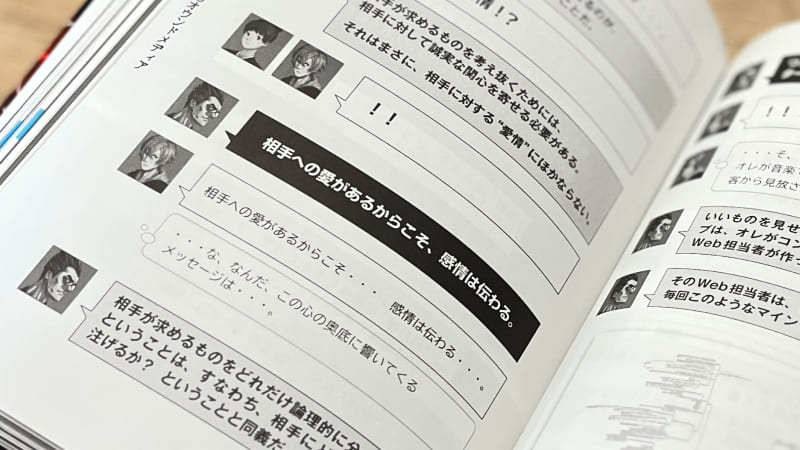 オウンドメディア
情！？
相手が求めるものを考え抜くためには、
相手に対して誠実な関心を寄せる必要がある。
それはまさに、相手に対する“愛情”にほかならない。
！！
相手への愛があるからこそ、感情は伝わる。
相手への愛があるからこそ・・・・ 感情は伝わる・・・。
・・・な、なんだ、この心の奥底に響いてくる
メッセージは・・・。
相手が求めるものをどれだけ論理的に分
ということは、すなわち、相手に
注げるか？ ということと同義だ
！！
・・・そ、
オレが音楽
客から見放さ
いいものを見せ
プは、オレがコン
Web担当者が作っ
そのWeb担当者は、
毎回このようなマイン